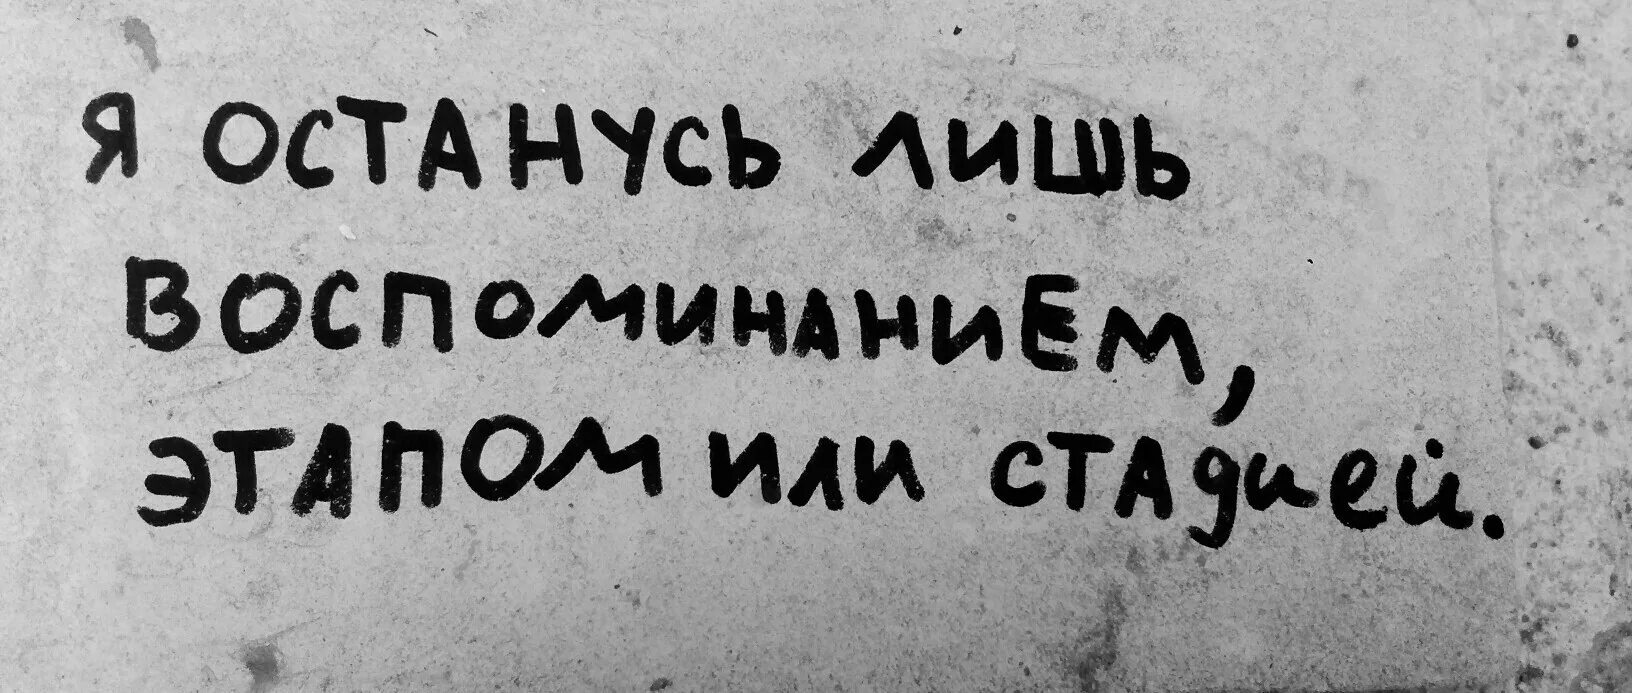 Я ОСТАНУСЬ ЛИШЬ
ВОСПОМИНАНИЕМ,
ЭТАПОМ ИЛИ СТАДИЕЙ.